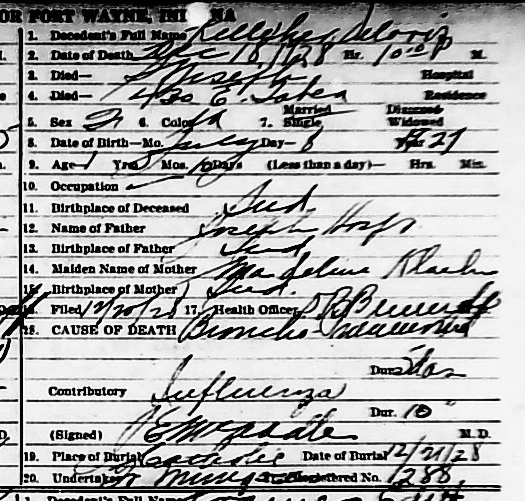 OR FORT WAYNE, INDIANA
1. Decedent's Full Name Deloris
2. Date of Death Dec 18, 1928 Hr. 10:00 P M.
3. Died— St Joseph Hospital
4. Died— 1430 E. Taber Residence
5. Sex F 6. Color W 7. Married Single Divorced Widowed
8. Date of Birth—Mo. July Day— 8 Year 27
9. Age— 1 Yrs. 5 Mos. 10 Days (Less than a day)— Hrs. Min.
10. Occupation
11. Birthplace of Deceased Ind.
12. Name of Father Joseph
13. Birthplace of Father Ind
14. Maiden Name of Mother Madeline
15. Birthplace of Mother Ind.
16. Filed 12/20/28 17. Health Officer
18. CAUSE OF DEATH Broncho Pneumonia
Dur.
Contributory Influenza
Dur. 10
(Signed) M. D.
19. Place of Burial Catholic Date of Burial 12/21/28
20. Undertaker Registered No. 1288
1. Decedent's Full Name